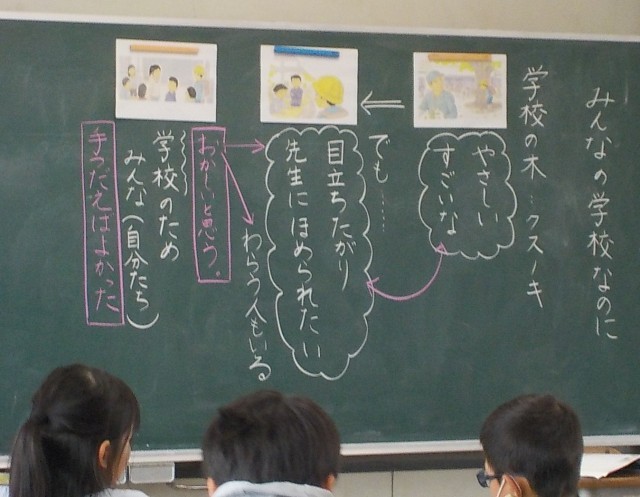 みんなの学校なのに
学校の木…クスノキ
やさしい
すごいな
でも……
目立ちたがり
先生にほめられたい
わらう人もいる
おかしいと思う。
学校のため
みんな(自分たち)
手つだえばよかった